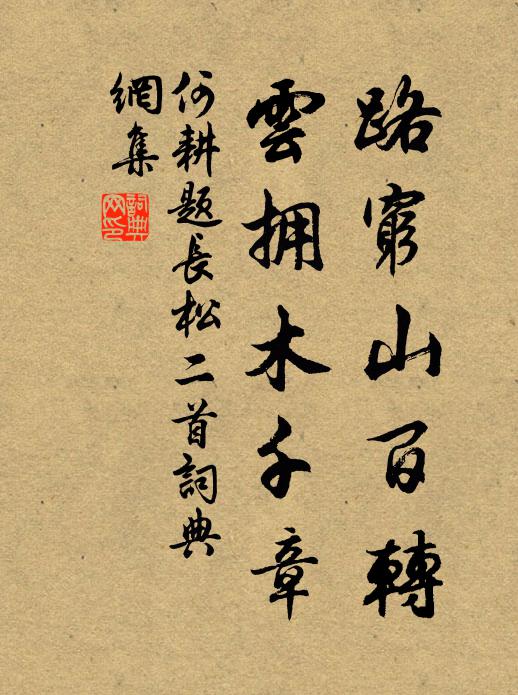 路穷山百轉
雲拥木千章
何耕题長松二首詞典
網集
詞典
网印